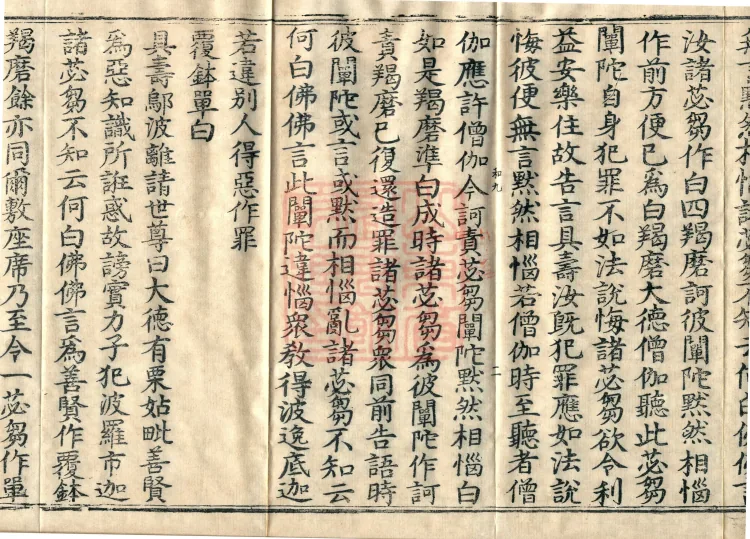 汝諸苾芻作白四羯磨訶彼闡陀默然相惱
作前方便已爲白羯磨大德僧伽聽此苾芻
闡陀自身犯罪不如法說悔諸苾芻欲令利
益安樂住故告言具壽汝旣犯罪應如法說
悔彼便無言默然相惱若僧伽時至聽者僧
伽應許僧伽今訶責苾芻闡陀默然相惱白
和九
二
如是羯磨準白成時諸苾芻爲彼闡陀作訶
責羯磨已復還造罪諸苾芻衆同前告語時
彼闡陀或言或默而相惱亂諸苾芻不知云
何白佛佛言此闡陀違惱衆教得波逸底迦
若違別人得惡作罪
覆鉢單白
具壽鄔波離請世尊曰大德有栗姑毗善賢
爲惡知識所誑惑故謗實力子犯波羅市迦
諸苾芻不知云何白佛佛言爲善賢作覆鉢
羯磨餘亦同爾敷座席乃至今一苾芻作單